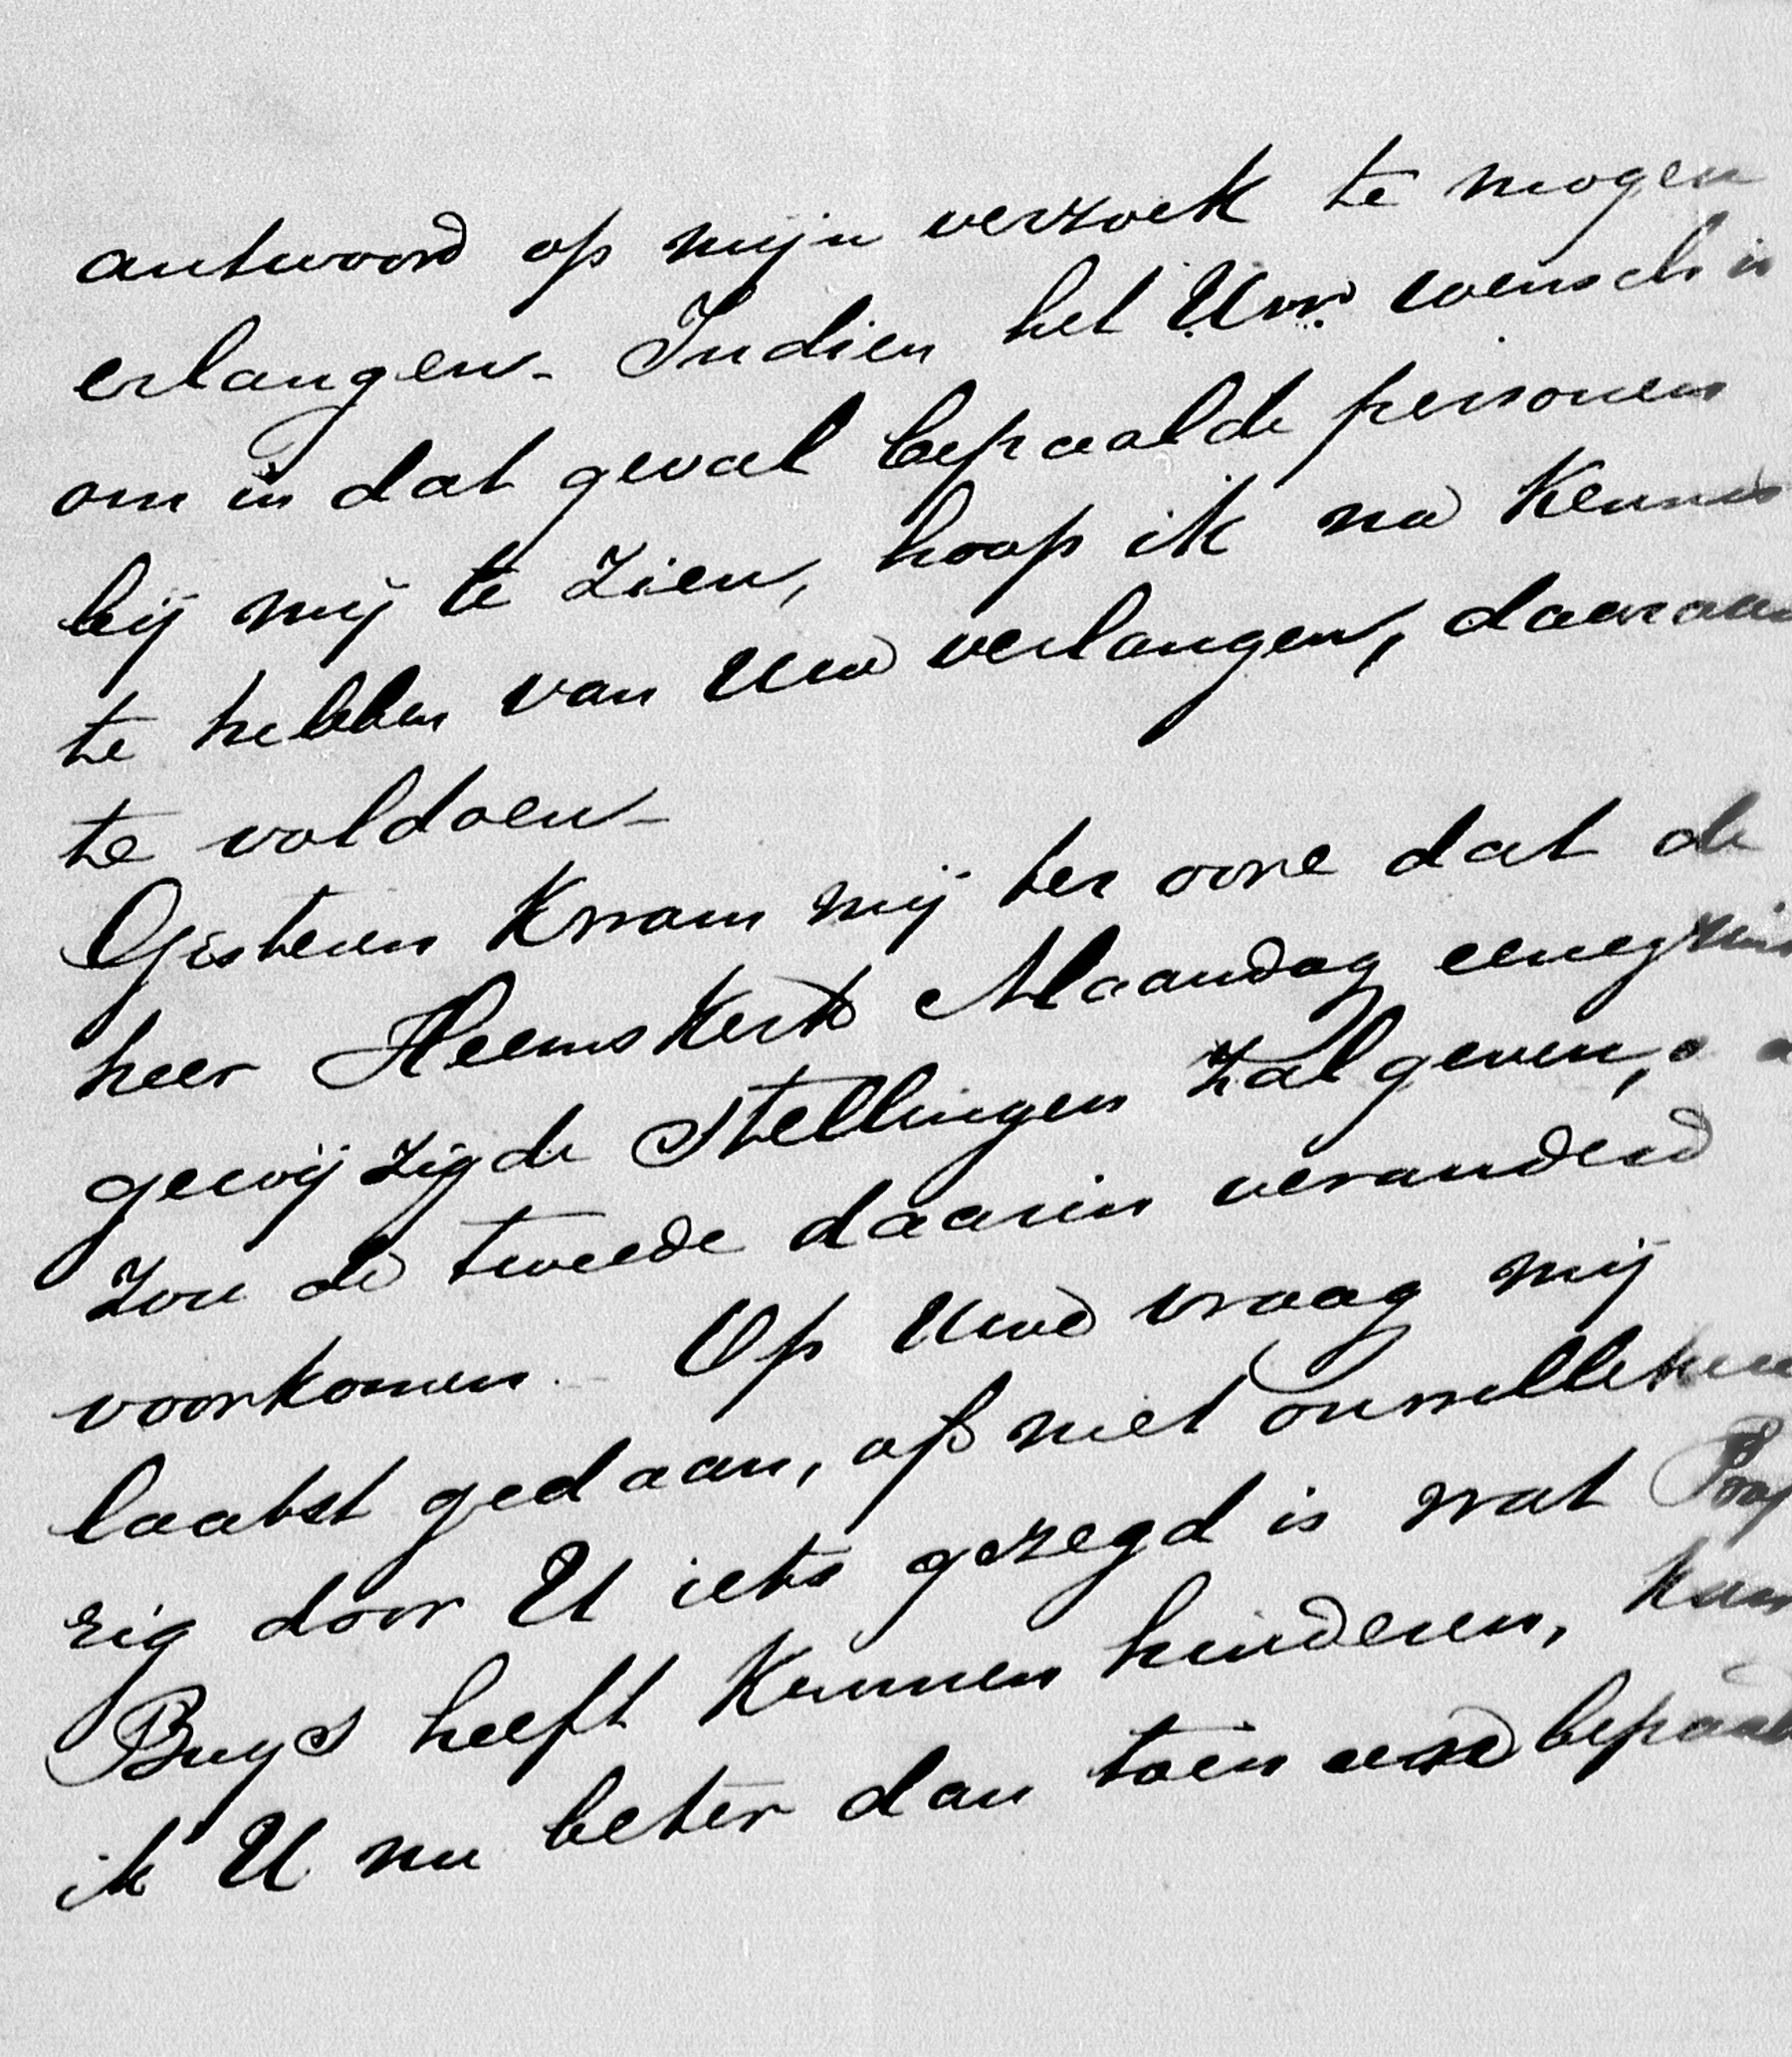 antwoord op mijn verzoek te mogen
erlangen. Indien het Uw wensch is
om in dat geval bepaalde personen
bij mij te zien, hoop ik na kennis
te hebben van Uw verlangen, daaraan
te voldoen
Gisteren kwam mij ter oore dat de
heer Heemskerk Maandag eenigzins
gewijzigde Stellingen zal geven,
Zou de tweede daarin veranderd
voorkomen. Op Uwe vraag mij
laatst gedaan, of niet onwillekeu
rig door U iets gezegd is wat Prof
Buys heeft kunnen hinderen, kan
ik U nu beter dan toen een bepaald